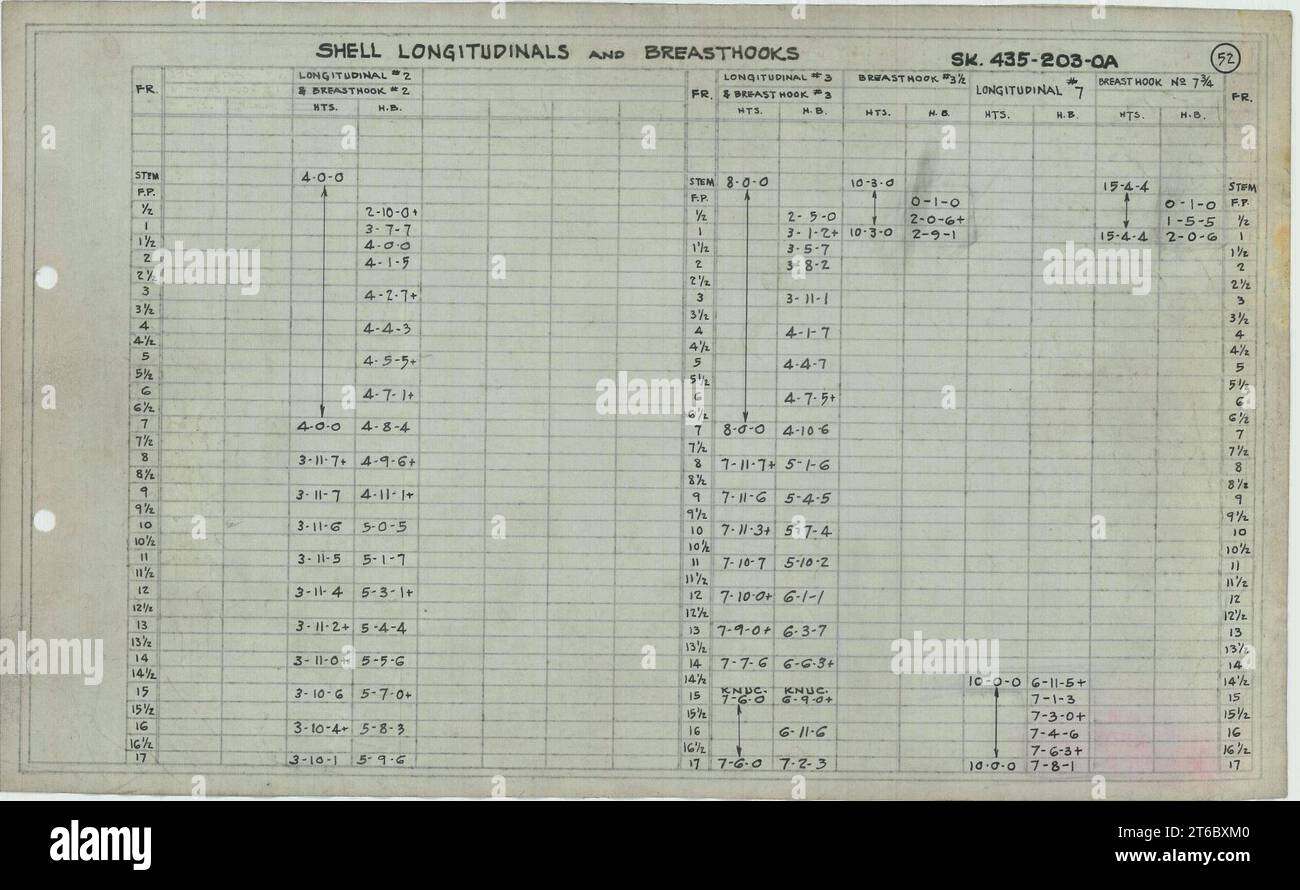 SHELL LONGITUDINALS AND BREASTHOOKS
SK. 435-203-0A
52
FR. LONGITUDINAL #2 & BREASTHOOK #2 FR. LONGITUDINAL #3 & BREASTHOOK #3 BREASTHOOK #3½ LONGITUDINAL #7 BREASTHOOK Nº 7¾ FR.
HTS. H.B. HTS. H.B. HTS. H.B. HTS. H.B. HTS. H.B.
STEM 4-0-0 STEM 8-0-0 10-3-0 15-4-4 STEM
F.P. F.P. 0-1-0 0-1-0 F.P.
½ 2-10-0+ ½ 2-5-0 2-0-6+ 1-5-5 ½
1 3-7-7 1 3-1-2+ 10-3-0 2-9-1 15-4-4 2-0-6 1
1½ 4-0-0 1½ 3-5-7 1½
2 4-1-5 2 3-8-2 2
2½ 2½ 2½
3 4-2-7+ 3 3-11-1 3
3½ 3½ 3½
4 4-4-3 4 4-1-7 4
4½ 4½ 4½
5 4-5-5+ 5 4-4-7 5
5½ 5½ 5½
6 4-7-1+ 6 4-7-5+ 6
6½ 6½ 6½
7 4-0-0 4-8-4 7 8-0-0 4-10-6 7
7½ 7½ 7½
8 3-11-7+ 4-9-6+ 8 7-11-7+ 5-1-6 8
8½ 8½ 8½
9 3-11-7 4-11-1+ 9 7-11-6 5-4-5 9
9½ 9½ 9½
10 3-11-6 5-0-5 10 7-11-3+ 5-7-4 10
10½ 10½ 10½
11 3-11-5 5-1-7 11 7-10-7 5-10-2 11
11½ 11½ 11½
12 3-11-4 5-3-1+ 12 7-10-0+ 6-1-1 12
12½ 12½ 12½
13 3-11-2+ 5-4-4 13 7-9-0+ 6-3-7 13
13½ 13½ 13½
14 3-11-0+ 5-5-6 14 7-7-6 6-6-3+ 14
14½ 14½ 10-0-0 6-11-5+ 14½
15 3-10-6 5-7-0+ 15 KNUC. 7-6-0 KNUC. 6-9-0+ 7-1-3 15
15½ 15½ 7-3-0+ 15½
16 3-10-4+ 5-8-3 16 6-11-6 7-4-6 16
16½ 16½ 7-6-3+ 16½
17 3-10-1 5-9-6 17 7-6-0 7-2-3 10-0-0 7-8-1 17
alamy
a
alamy
Image ID: 2T6BXM0
www.alamy.com